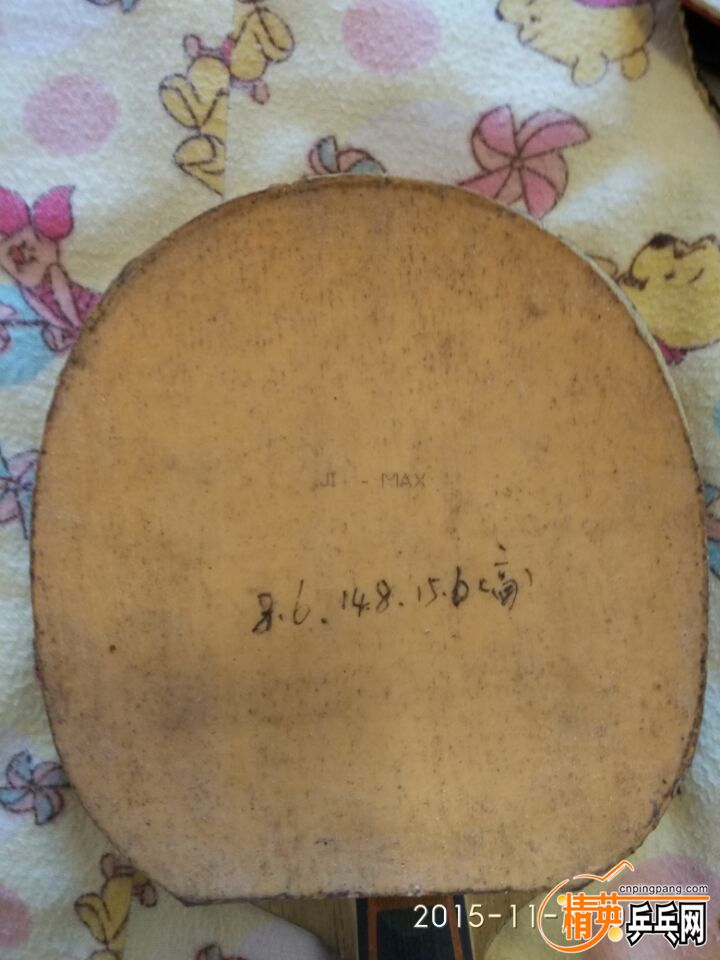 JI - MAX
8.6.14.8.15.6(高)
cnpingpang.com
2015-11-
精英乒乓网